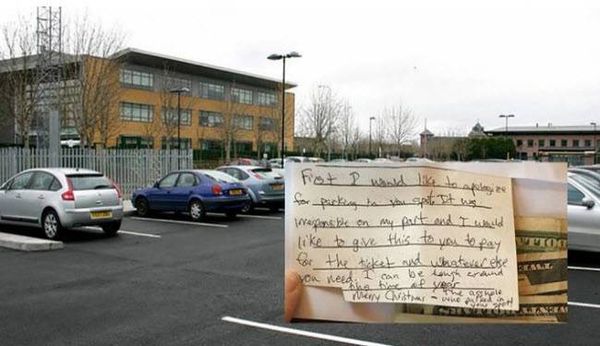 First I would like to apologize
for parking in your spot. It was
irresponsible on my part and I would
like to give this to you to pay
for the ticket and whatever else
you need. I can be tough around
this time of year
Merry Christmas - The asshole
who parked in
your spot!